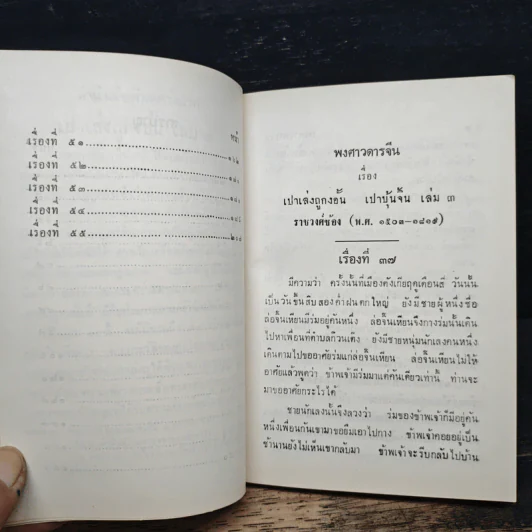 หน้า
เรื่องที่ ๕๑
เรื่องที่ ๕๒
เรื่องที่ ๕๓
เรื่องที่ ๕๔
เรื่องที่ ๕๕
พงศาวดารจีน
เรื่อง
เปาเล่งถูกงอั้น เปาบุ้นจิ้น เล่ม ๓
ราชวงศ์ซ้อง (พ.ศ. ๑๕๐๓–๑๘๑๙)
เรื่องที่ ๓๗
มีความว่า ครั้งนั้นที่เมือง วันนั้น
เป็นวันขึ้นสิบสองค่ำฝนตกใหญ่ ยังมีชายผู้หนึ่งชื่อ
ล่อจิ้นเหียนมีร่มอยู่คันหนึ่ง ล่อจิ้นเหียนจึงกางร่มนั้นเดิน
ไปหาเพื่อนที่ตำบลกิวนเต็ง ยังมีชายหนุ่มนักเลงคนหนึ่ง
เดินตามไปขออาศัยร่มแก่ล่อจิ้นเหียน ล่อจิ้นเหียนไม่ให้
อาศัยแล้วพูดว่า ข้าพเจ้ามีร่มมาแต่คันเดียวเท่านี้ ท่านจะ
มาขออาศัยกระไรได้
ชายนักเลงนั้นจึงลวงว่า ร่มของข้าพเจ้าก็มีอยู่คัน
หนึ่งเพื่อนกันเขามาขอยืมเอาไปกาง ข้าพเจ้าคอยอยู่เป็น
ช้านานยังไม่เห็นเขากลับมา ข้าพเจ้าจะรีบกลับไปบ้าน